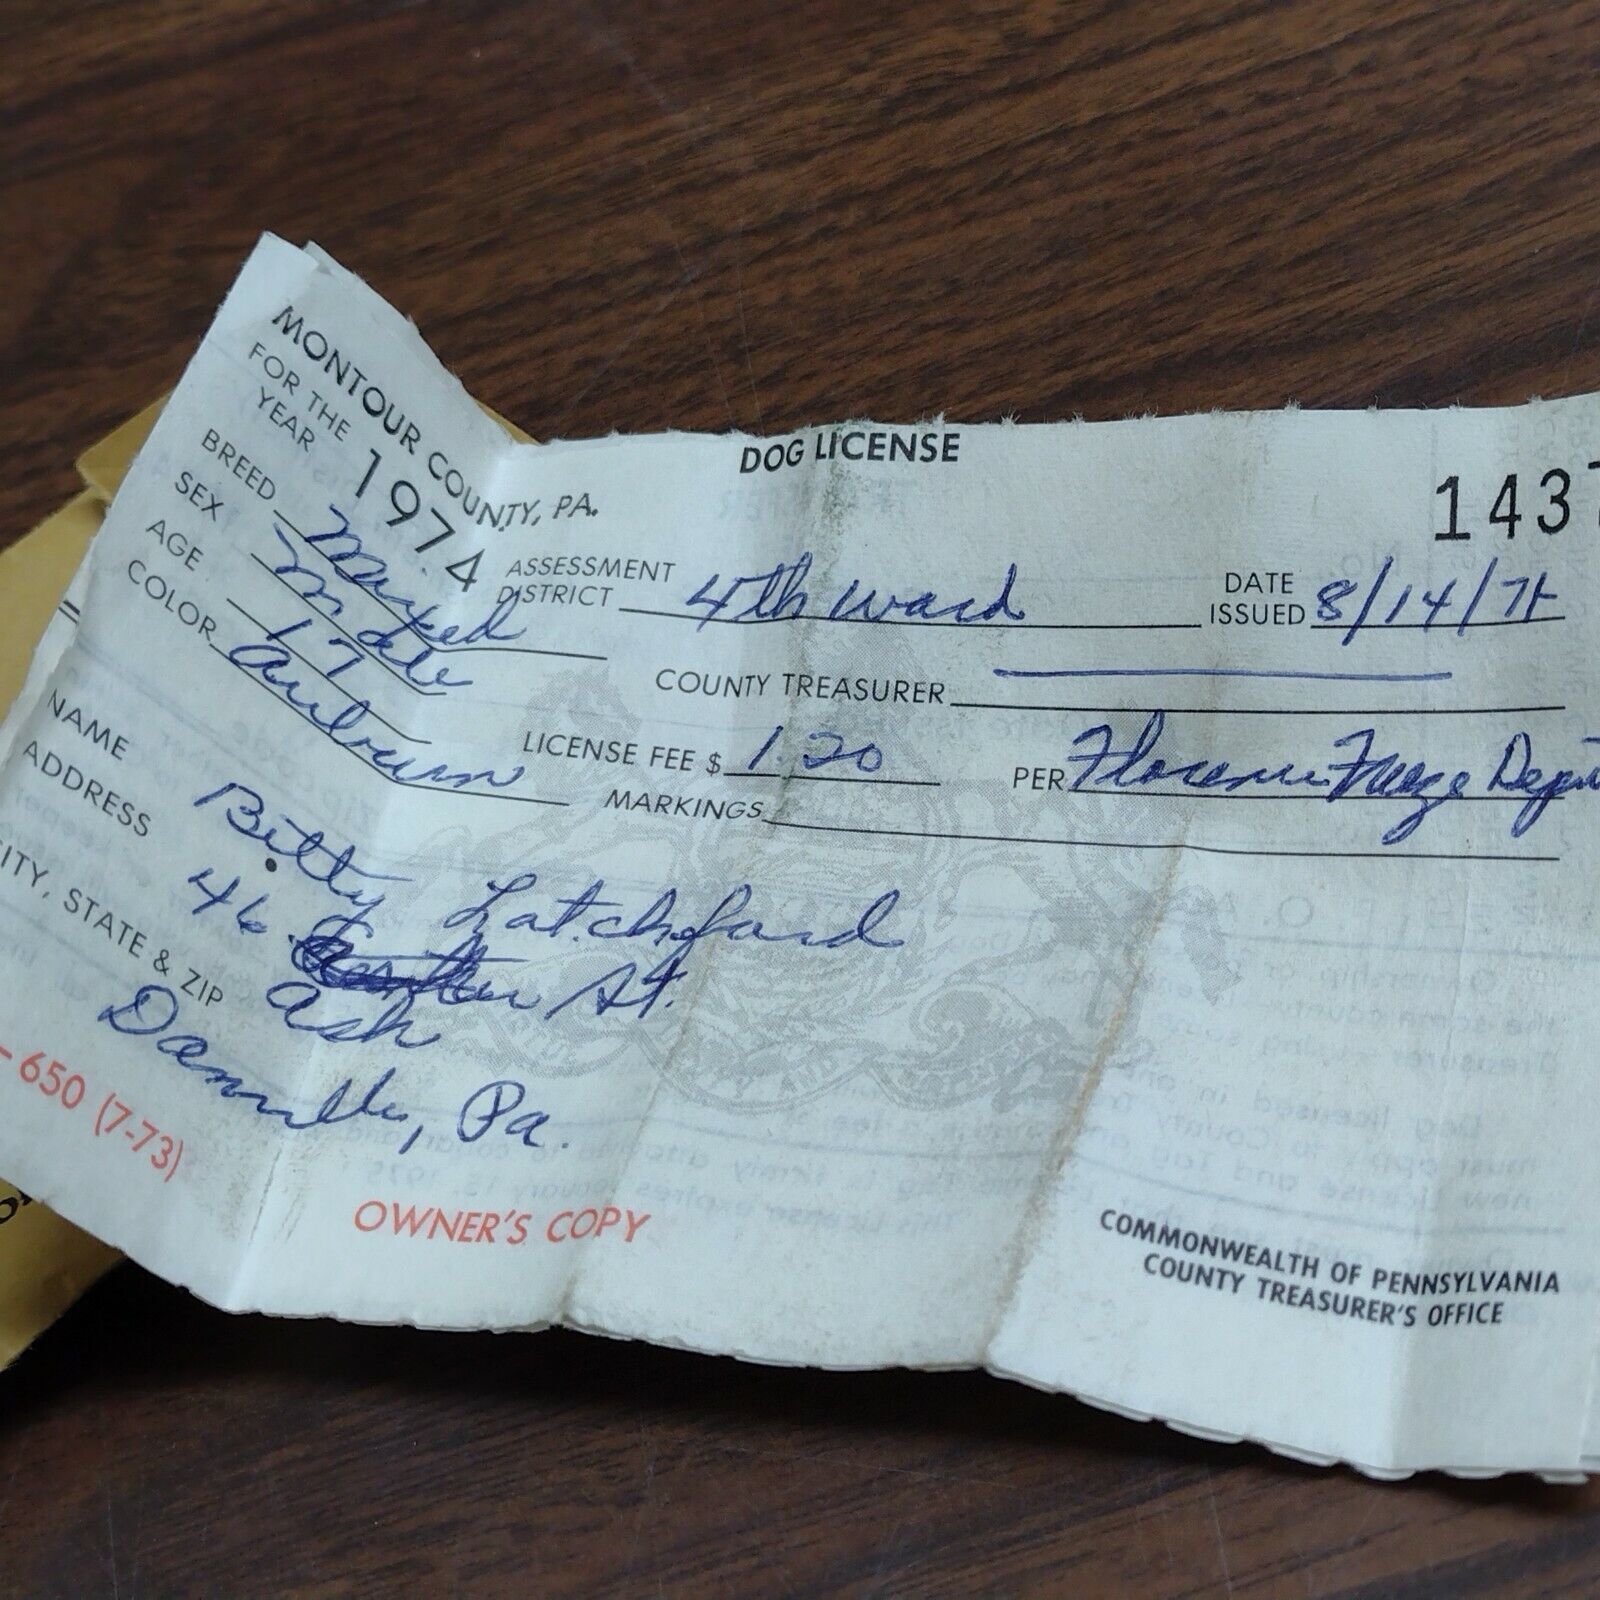 MONTOUR COUNTY, PA.
DOG LICENSE
FOR THE YEAR 1974
143
BREED Mixed
ASSESSMENT DISTRICT 4th ward
DATE ISSUED 8/14/74
SEX Male
AGE 17
COUNTY TREASURER
COLOR auburn
LICENSE FEE $ 1.20
PER Florence Deput
MARKINGS
NAME Bitty Latchford
ADDRESS 46 St.
Ash
CITY, STATE & ZIP Danville, Pa.
650 (7-73)
OWNER'S COPY
COMMONWEALTH OF PENNSYLVANIA
COUNTY TREASURER'S OFFICE